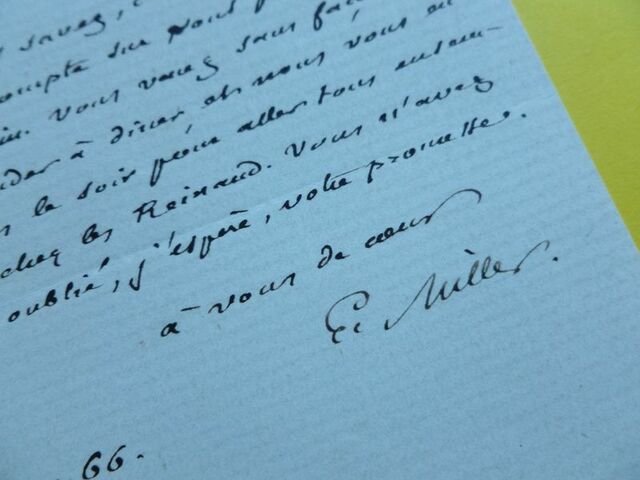 savez,
compte sur vous
. Vous venez sans fa
der à dîner et nous vous en
le soir pour aller tous ensem-
chez les Reinaud. Vous n'avez
oublié, j'espère, votre promesse.
à vous de cœur
E. Miller.
66.